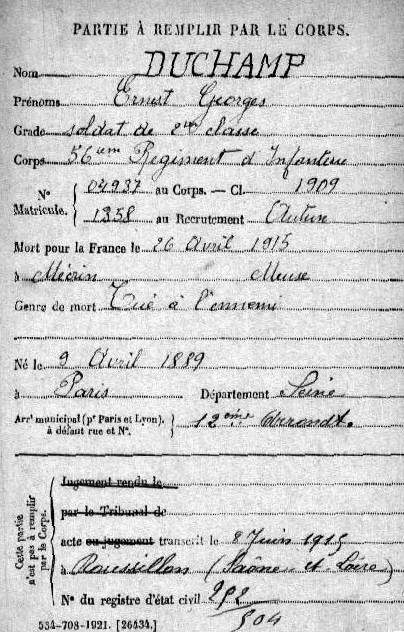 PARTIE À REMPLIR PAR LE CORPS.
Nom DUCHAMP
Prénoms Ernest Georges
Grade soldat de 2me classe
Corps 56eme Régiment d'Infanterie
N° Matricule. { 04937 au Corps. — Cl. 1909
1358 au Recrutement Autun
Mort pour la France le 26 Avril 1915
à Mécrin Meuse
Genre de mort Tué à l'ennemi
Né le 9 Avril 1889
à Paris Département Seine
Arrt municipal (pr Paris et Lyon), à défaut rue et N°. } 12eme Arrondt.
Cette partie n'est pas à remplir par le Corps.
Jugement rendu le
par le Tribunal de
acte ou jugement transcrit le 8 Juin 1915
à Roussillon (Saône et Loire)
N° du registre d'état civil
504
534-708-1921. [26434.]